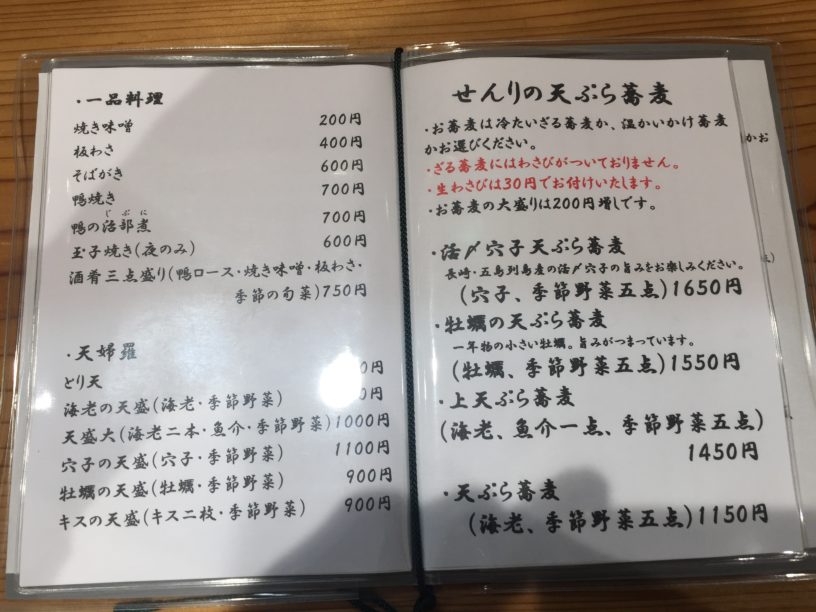 ・一品料理
焼き味噌 200円
板わさ 400円
そばがき 600円
鴨焼き 700円
じぶに
鴨の治部煮 700円
玉子焼き(夜のみ) 600円
酒肴三点盛り(鴨ロース・焼き味噌・板わさ・
季節の旬菜)750円
・天婦羅
とり天 0円
海老の天盛(海老・季節野菜) 0円
天盛大(海老二本・魚介・季節野菜)1000円
穴子の天盛(穴子・季節野菜) 1100円
牡蠣の天盛(牡蠣・季節野菜) 900円
キスの天盛(キス二枚・季節野菜) 900円
せんりの天ぷら蕎麦
・お蕎麦は冷たいざる蕎麦か、温かいかけ蕎麦
かお選びください。
・ざる蕎麦にはわさびがついておりません。
・生わさびは30円でお付けいたします。
・お蕎麦の大盛りは200円増しです。
・活〆穴子天ぷら蕎麦
長崎・五島列島産の活〆穴子の旨みをお楽しみください。
(穴子、季節野菜五点)1650円
・牡蠣の天ぷら蕎麦
一年物の小さい牡蠣。旨みがつまっています。
(牡蠣、季節野菜五点)1550円
・上天ぷら蕎麦
(海老、魚介一点、季節野菜五点)
1450円
・天ぷら蕎麦
(海老、季節野菜五点)1150円